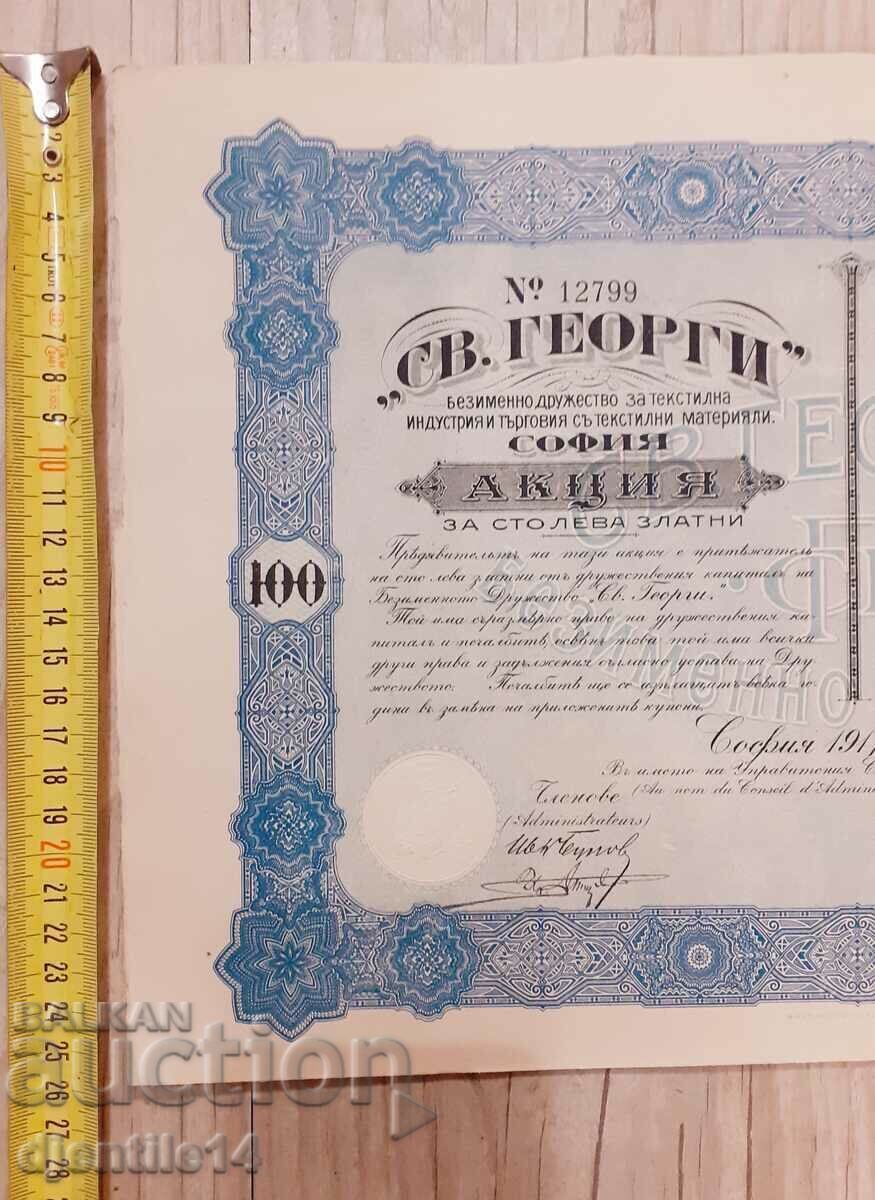 № 12799
„СВ. ГЕОРГИ”
Безименно дружество за текстилна
индустрия и търговия съ текстилни материяли.
СОФИЯ
АКЦИЯ
ЗА СТО ЛЕВА ЗЛАТНИ
100
Прѣдявительтъ на тази акция е притѣжатель
на сто лева златни отъ дружествения капиталъ на
Безименното Дружество „Св. Георги.”
Той има съразмѣрно право на дружествения ка-
питал и печалбитѣ, освѣнъ това той има всички
други права и задължения съгласно устава на Дру
жеството. Печалбитѣ ще се изплащатъ всѣка го-
дина въ замѣна на приложенитѣ купони.
София 191
Въ името на Управителния С
Членове (Au nom du Conseil d'Admin
(Administrateurs)
СВ ГЕО
БЕЗИМЕННО
BALKAN
auction
djentile14
2
3
4
5
6
7
8
9
10
11
12
13
14
15
16
17
18
19
20
21
22
23
24
25
26
27
28